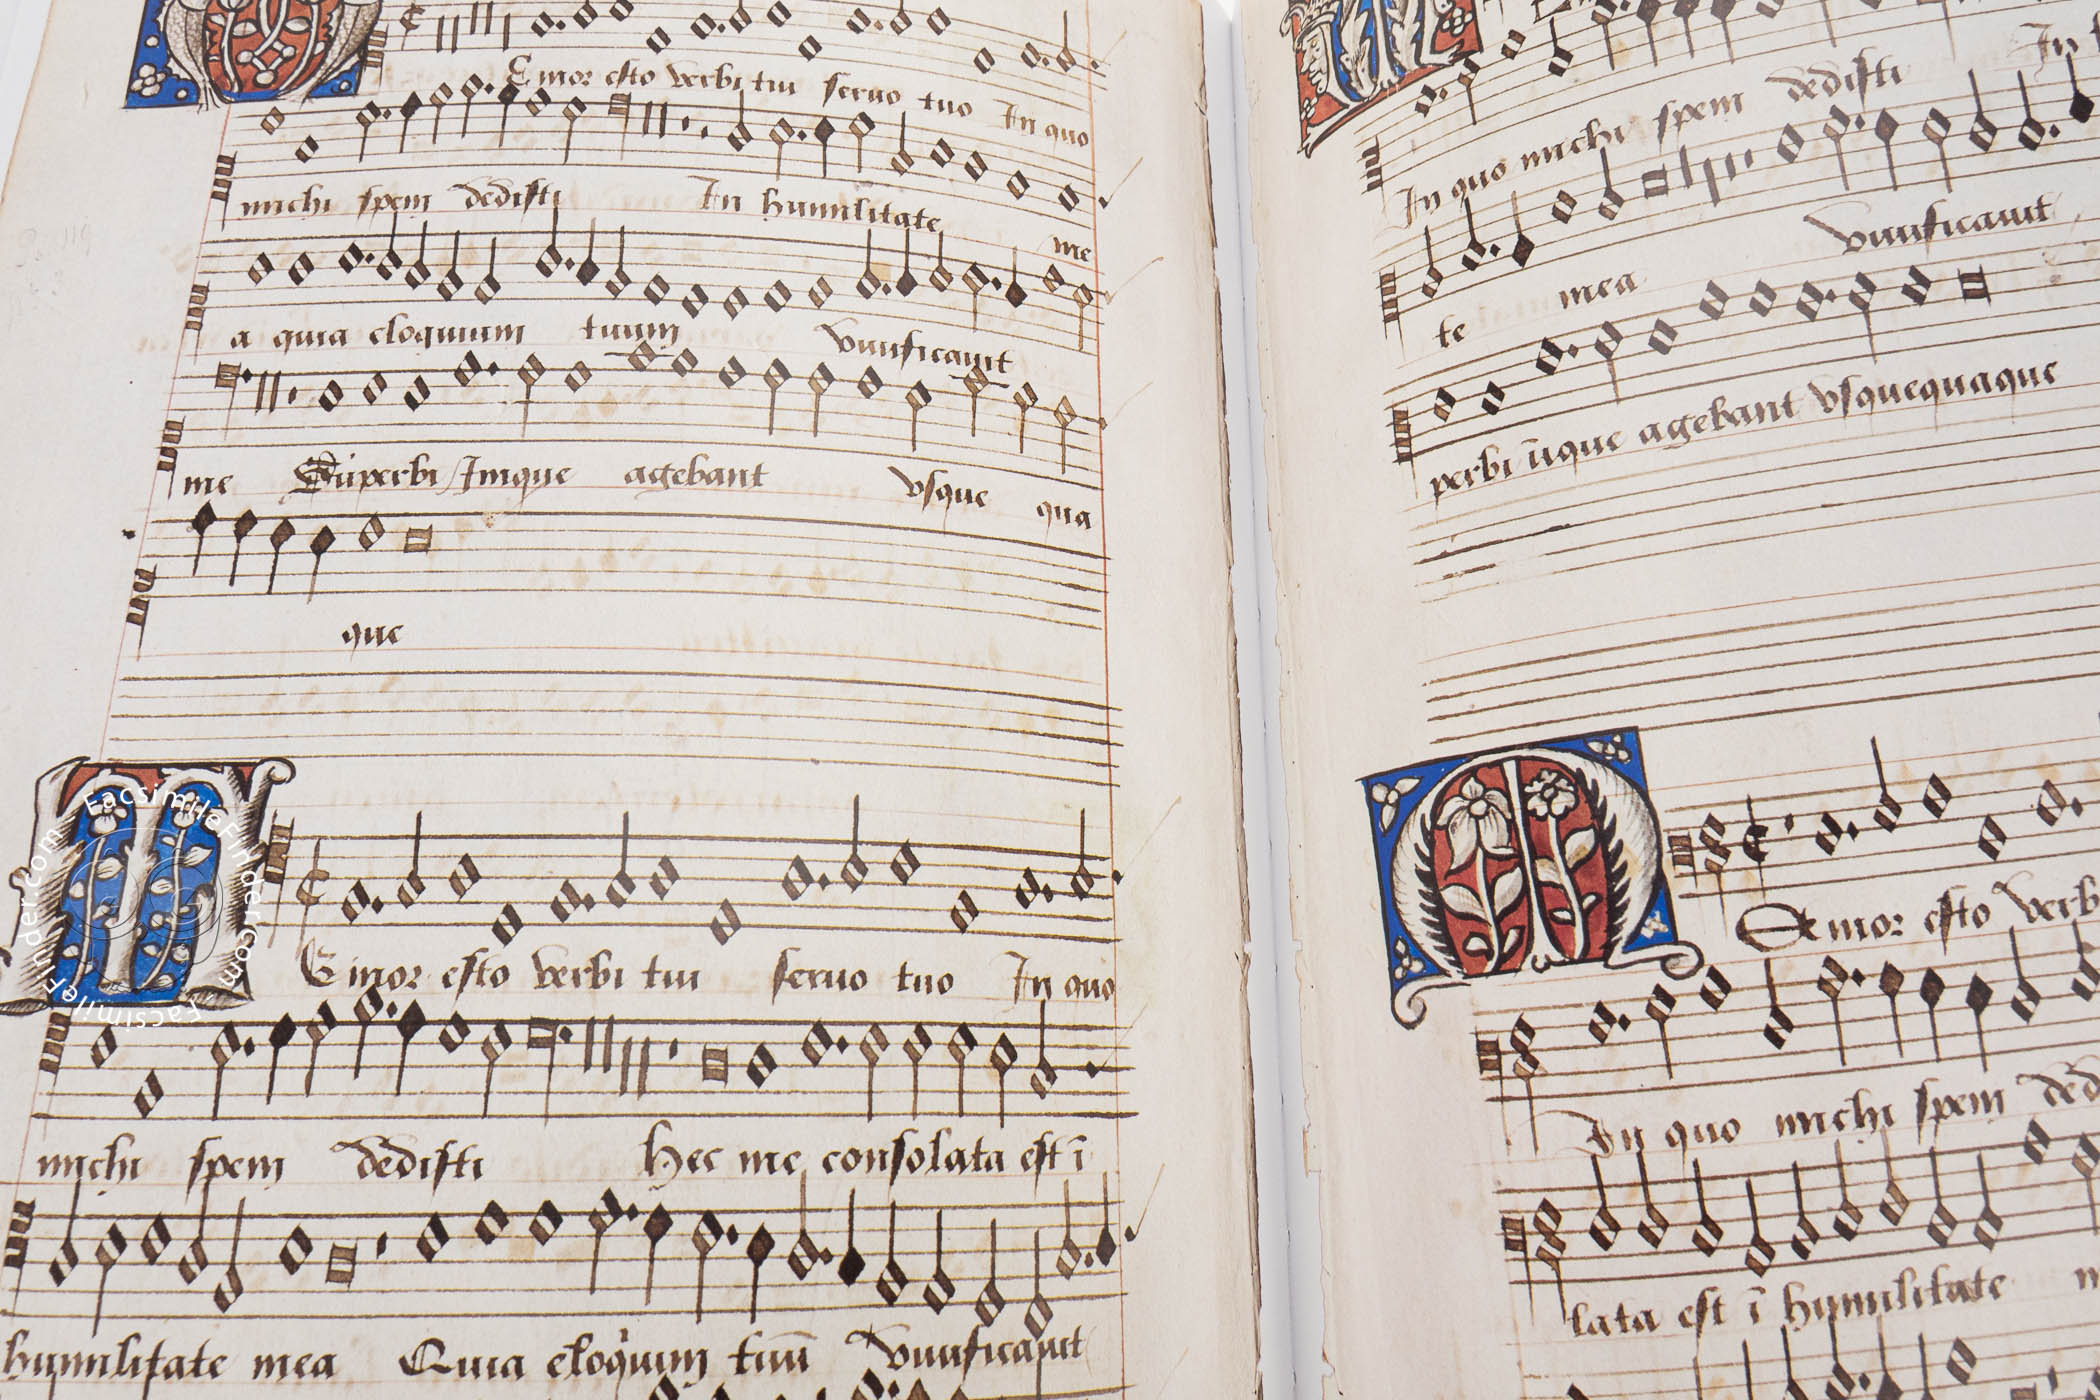 Emor esto verbi tui servo tuo In quo
michi spem dedisti In humilitate me
a quia eloquium tuum vivificavit
me Superbi Inique agebant vsque qua
que
Emor esto verbi tui servo tuo In quo
michi spem dedisti Hec me consolata est ī
humilitate mea Quia eloquium tuū vivificavit
dedisti In
In quo michi spem
te mea vivificavit
perbi īique agebant vsquequaque
Emor esto verb
In quo michi spem ded
lata est ī humilitate m
FacsimileFinder.com
FacsimileFinder.com